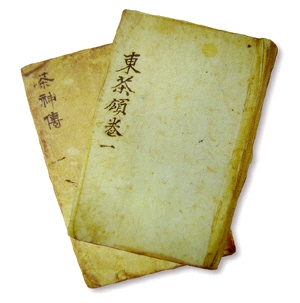 東茶頌卷一
茶神傳